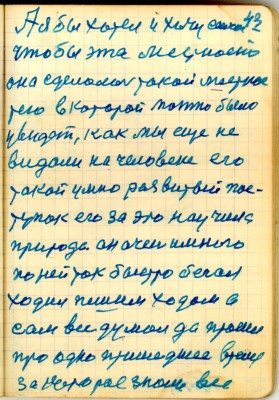 42
А я бы хотел и хочу
чтобы эта местность
она сделалась такой местнос
тею в которой можно было
увидеть, как мы еще не
видали на человеке его
такой умно развитый пос-
тупок его за это научила
природа он очен много
по ней так быстро бегал
ходил пешим ходом а
сам все думал да прошел
про одно пришедшее время
за которое знают все